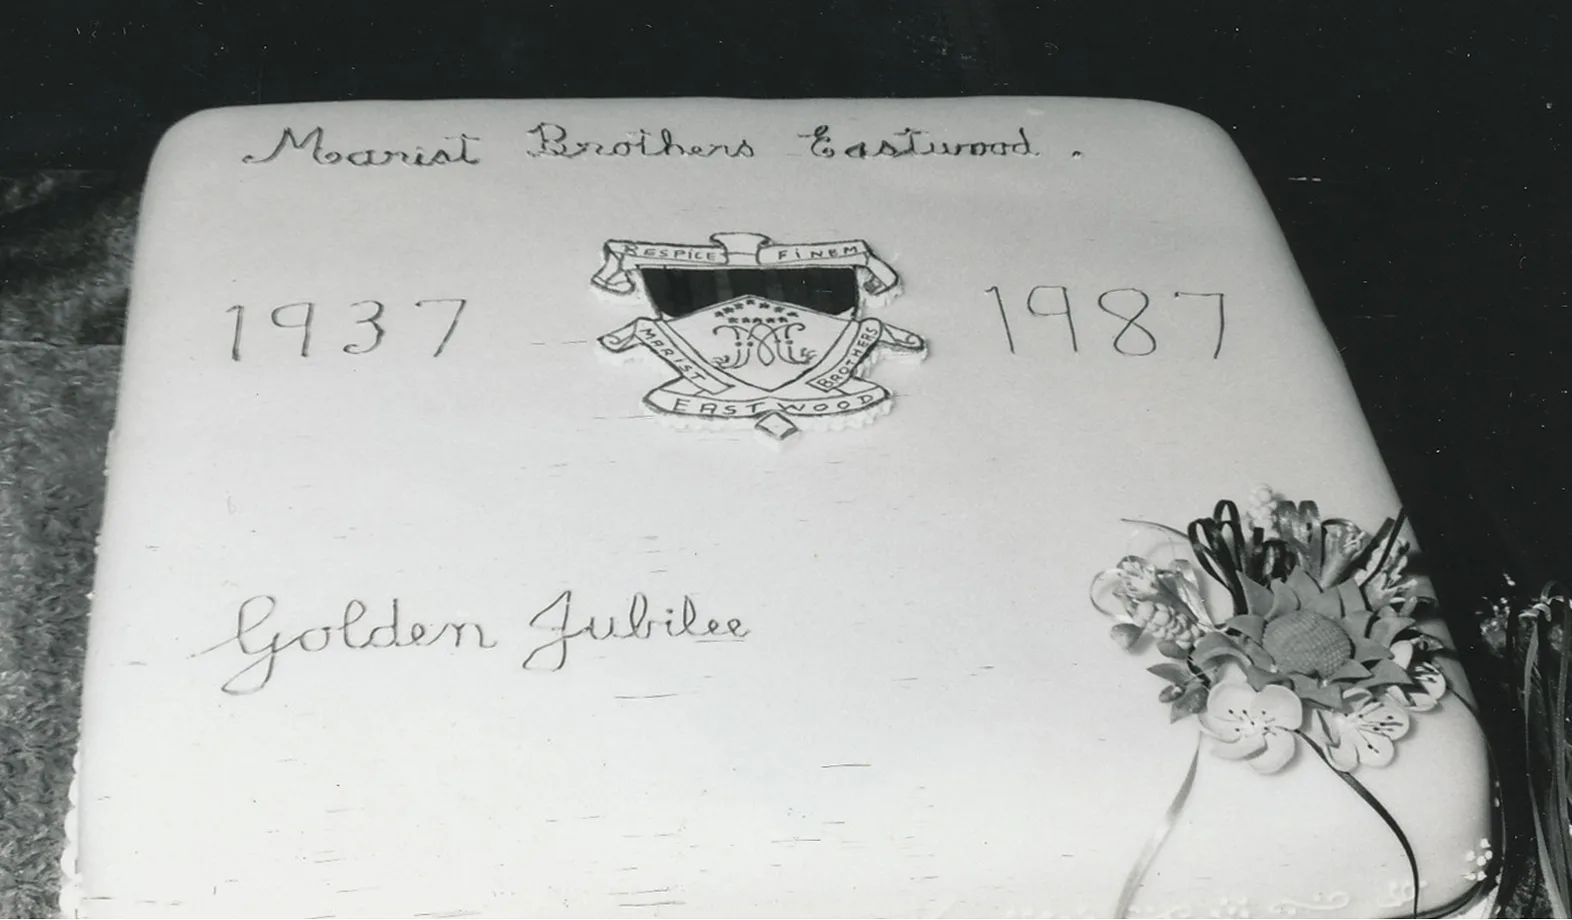 Marist Brothers Eastwood.
RESPICE FINEM
1937
1987
MARIST BROTHERS
EASTWOOD
Golden Jubilee